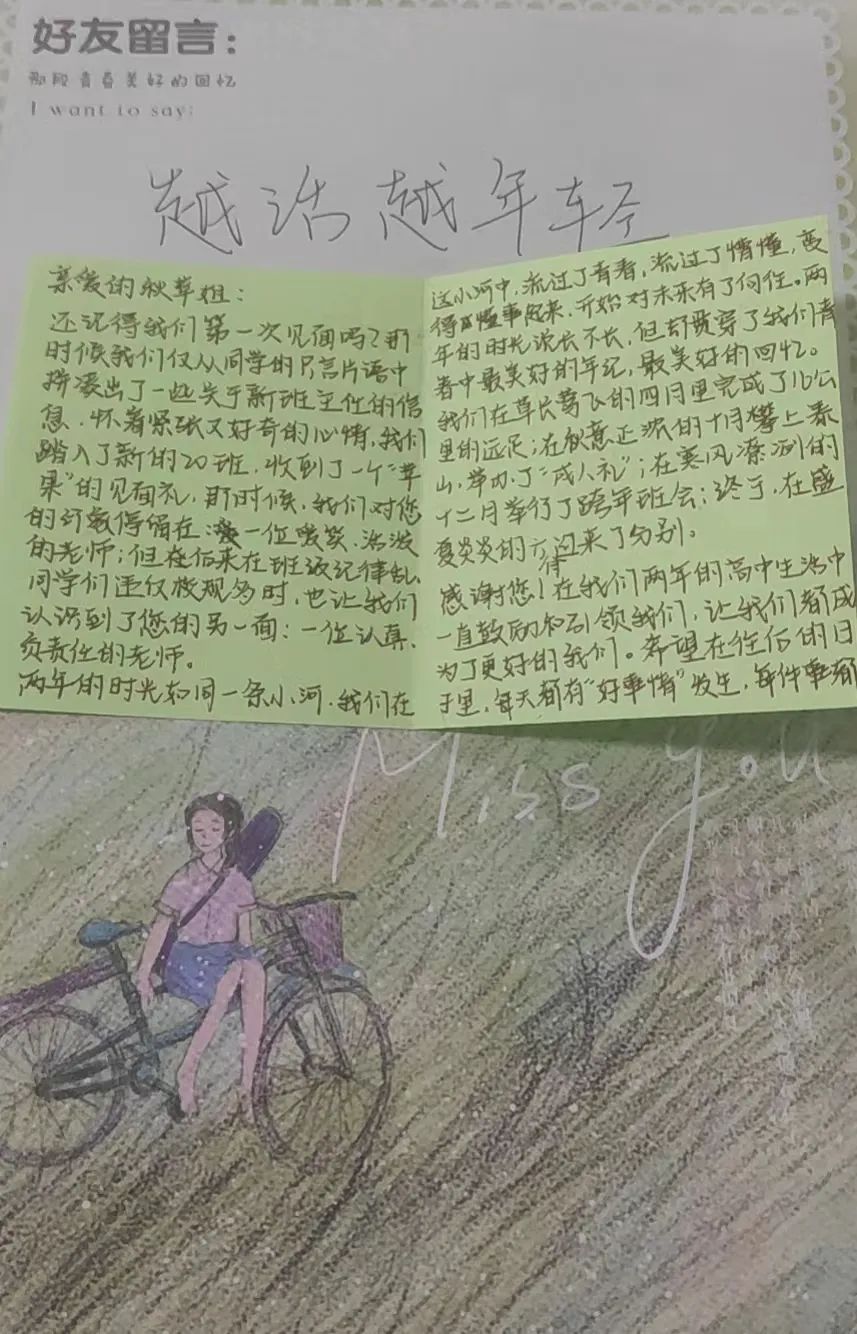 好友留言：
那段青春美好的回忆
I want to say:
越活越年轻
亲爱的秋草姐：
还记得我们第一次见面吗？那
时候我们仅从同学的只言片语中
拼凑出了一些关于新班主任的信
息，怀着紧张又好奇的心情，我们
踏入了新的20班，收到了一个“苹
果”的见面礼，那时候，我们对您
的印象停留在：一位爱笑、活泼
的老师；但在后来在班级纪律乱、
同学们违仪扣现多时，也让我们
认识到了您的另一面：一位认真、
负责任的老师。
两年的时光如同一条小河，我们在
这小河中，流过了青春，流过了懵懂，变
得懂事起来，开始对未来有了向往。两
年的时光说长不长，但却贯穿了我们青
春中最美好的年记，最美好的回忆。
我们在草长莺飞的四月里完成了18公
里的远足；在秋意正浓的十月攀上泰
山，举办了“成人礼”；在寒风凛冽的
十二月举行了跨年班会；终于，在盛
夏炎炎的六月迎来了分别。
感谢您！在我们两年的高中生活中
一直鼓励和引领我们，让我们都成
为了更好的我们。希望在往后的日
子里，每天都有“好事情”发生，每件事都
Miss you